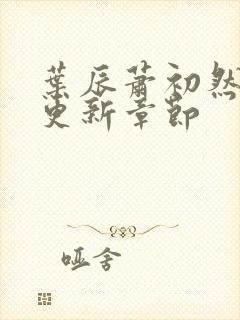 葉辰蕭初然
更新章節
哑舍